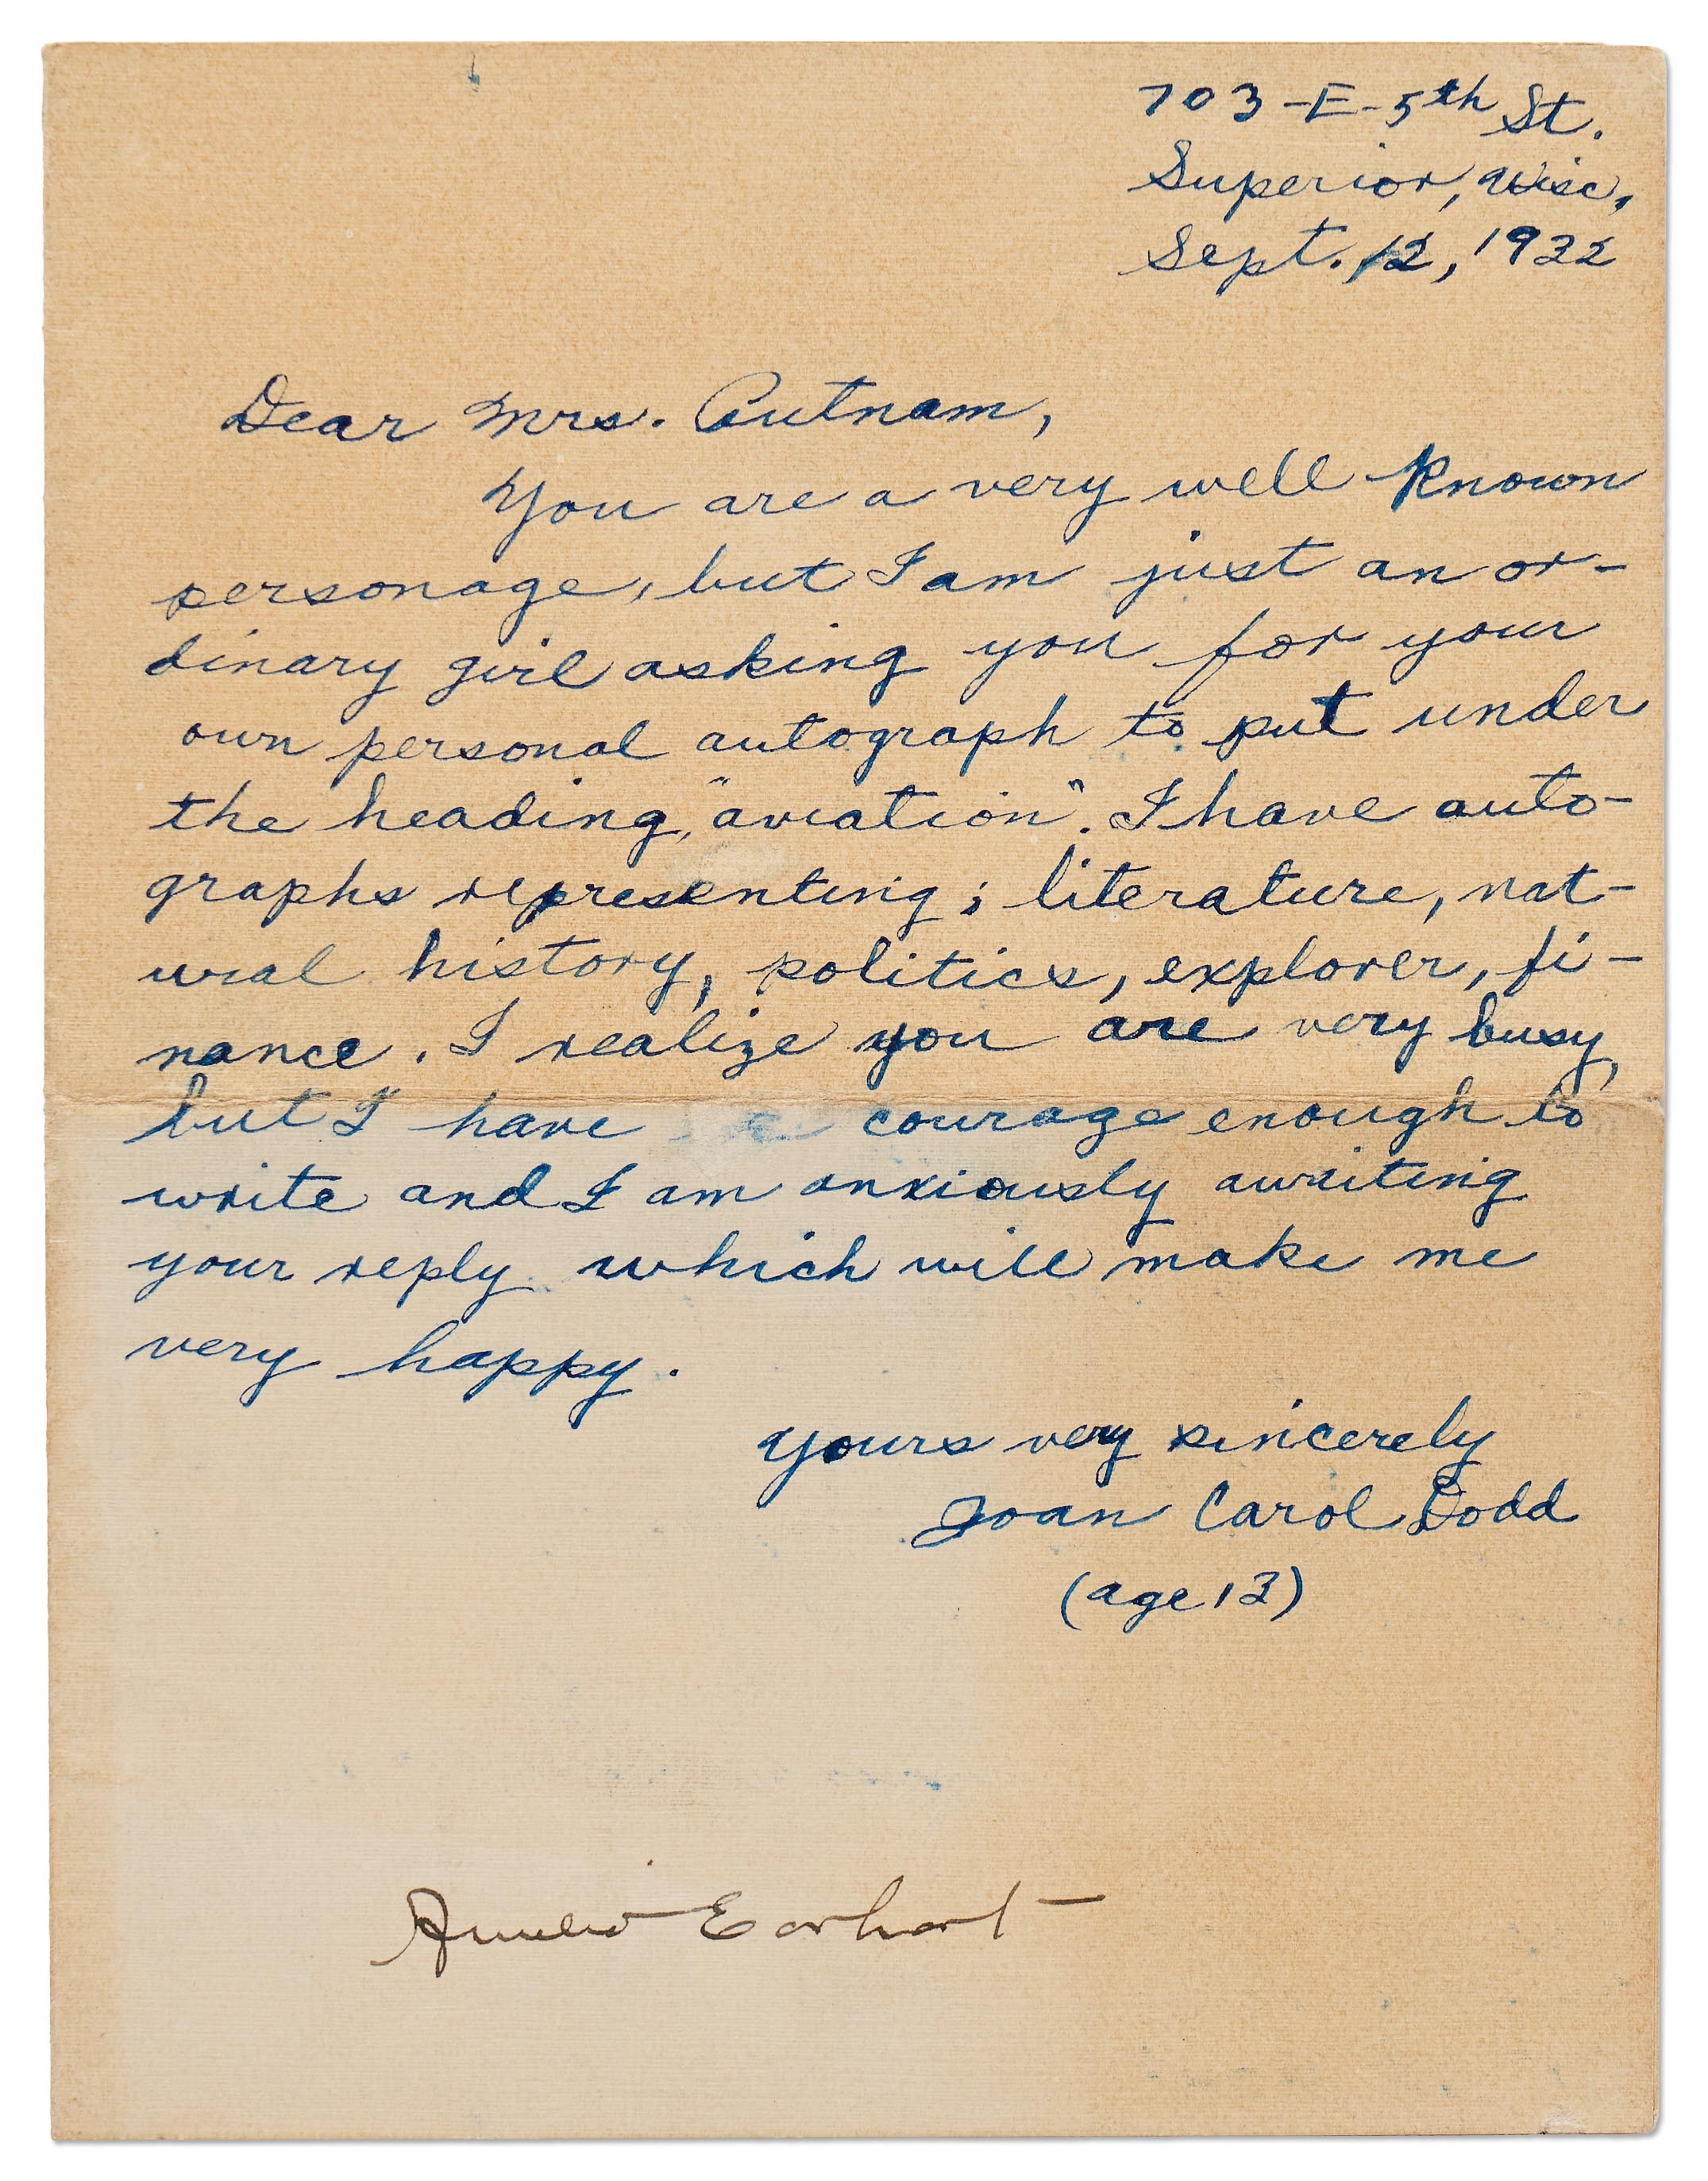 703-E-5th St.
Superior, Wisc.
Sept. 12, 1932
Dear Mrs. Putnam,
You are a very well known
personage, but I am just an or-
dinary girl asking you for your
own personal autograph to put under
the heading, "aviation". I have auto-
graphs representing; literature, nat-
ural history, politics, explorer, fi-
nance. I realize you are very busy,
but I have courage enough to
write and I am anxiously awaiting
your reply which will make me
very happy.
Yours very sincerely
Joan Carol Dodd
(age 13)
Amelia Earhart